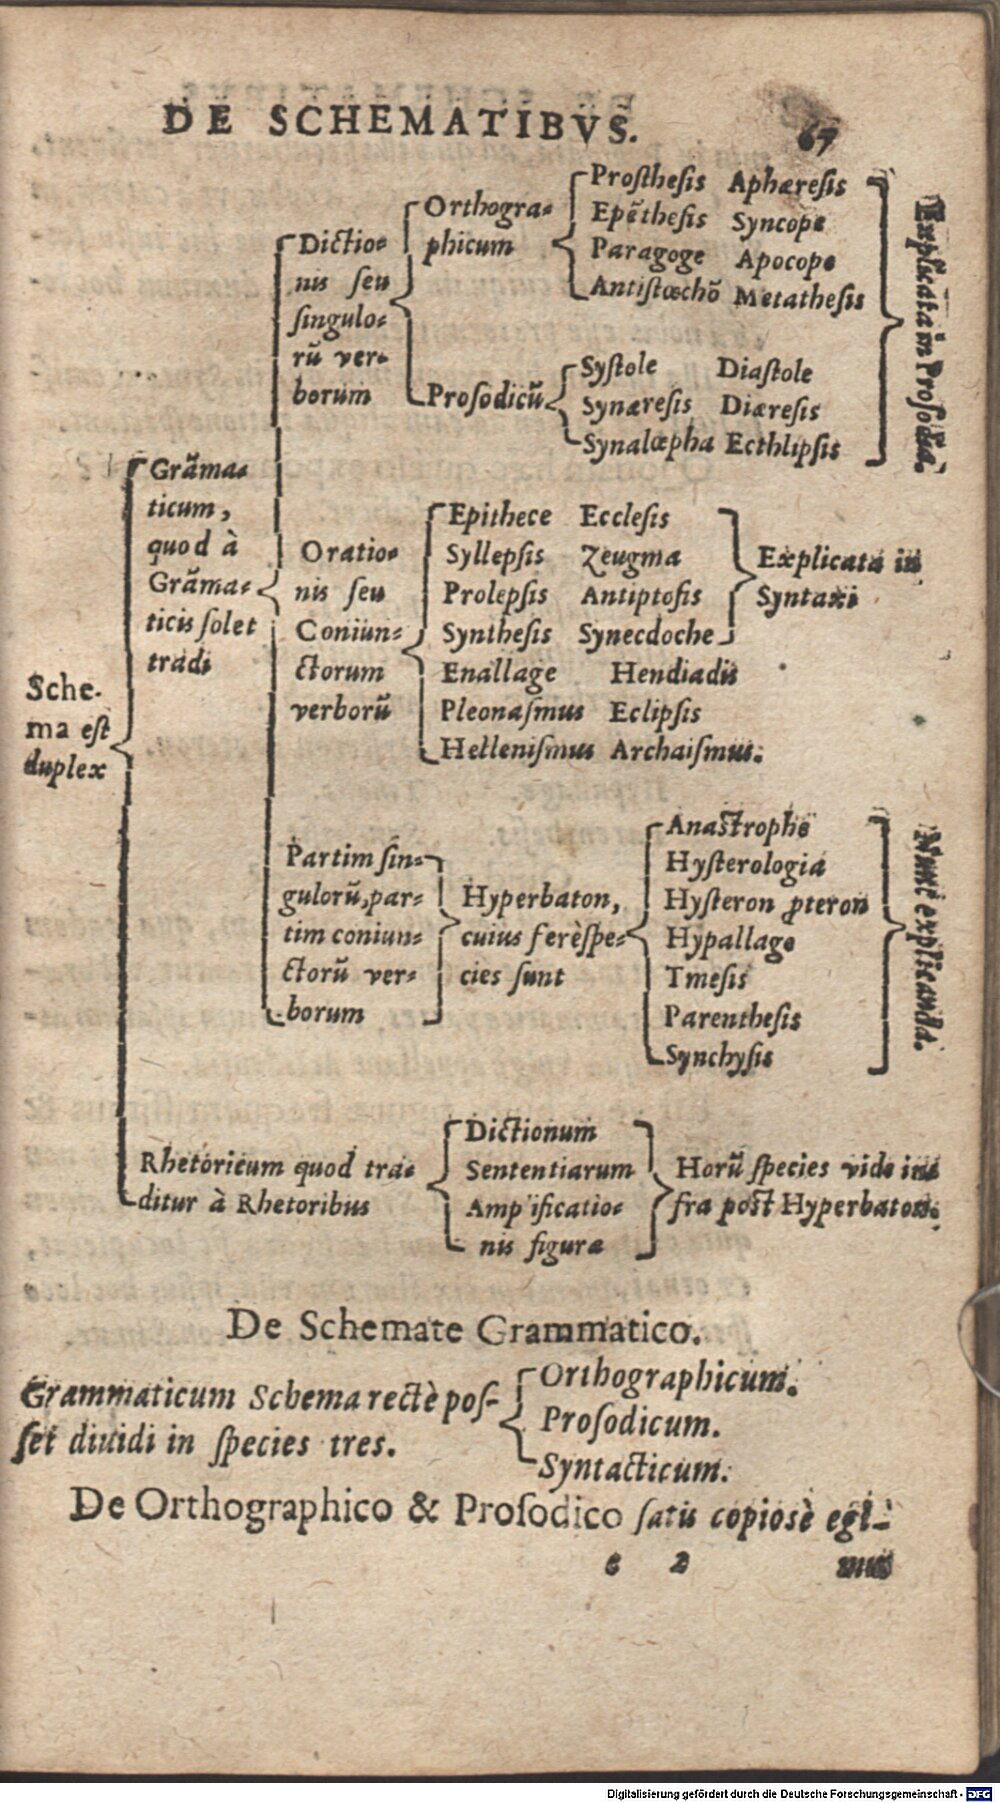 DE SCHEMATIBVS.
67
Sche-
ma est
duplex
Grãma-
ticum,
quod à
Grãma-
ticis solet
tradi
Dictio-
nis seu
singulo-
rũ ver-
borum
Orthogra-
phicum
Prosthesis Aphæresis
Epẽthesis Syncope
Paragoge Apocope
Antistœchõ Metathesis
Prosodicũ
Systole Diastole
Synæresis Diæresis
Synalœpha Ecthlipsis
Explicata in Prosodia.
Oratio-
nis seu
Coniun-
ctorum
verborũ
Epithece Ecclesis
Syllepsis Zeugma
Prolepsis Antiptosis
Synthesis Synecdoche
Enallage Hendiadis
Pleonasmus Eclipsis
Hellenismus Archaismus.
Explicata in
Syntaxi
Partim sin-
gulorũ, par-
tim coniun-
ctorũ ver-
borum
Hyperbaton,
cuius ferè spe-
cies sunt
Anastrophe
Hysterologia
Hysteron ꝓteron
Hypallage
Tmesis
Parenthesis
Synchysis
Nunc explicanda.
Rhetoricum quod tra-
ditur à Rhetoribus
Dictionum
Sententiarum
Amp ificatio-
nis figuræ
Horũ species vide in-
fra post Hyperbaton.
De Schemate Grammatico.
Grammaticum Schema rectè pos-
set diuidi in species tres.
Orthographicum.
Prosodicum.
Syntacticum.
De Orthographico & Prosodico satis copiosè egi-
e 2 mus
Digitalisierung gefördert durch die Deutsche Forschungsgemeinschaft - DFG